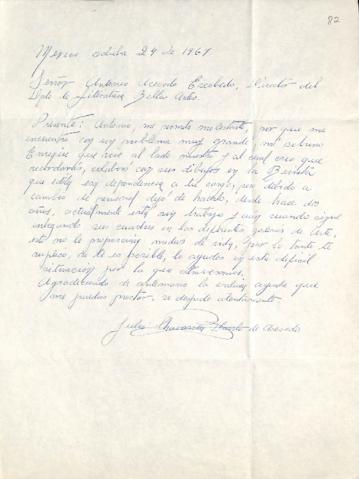 82
Mexico octubre 24 de 1967
Señor Antonio Acevedo Escobedo, Director del
Dpto de Literatura Bellas Artes.
Presente: Antonio, me permito molestarte, por que me
encuentro con un problema muy grande, mi sobrino
Enrique que vive al lado nuestro y al cual creo que
recordarás, colaboró con sus dibujos en la Revista
que edita esa dependencia a tu cargo, pero debido a
cambio de personal dejó de hacerlo, desde hace dos
años, actualmente está sin trabajo y aun cuando sigue
integrando sus cuadros en las diferentes galerías de Arte,
esto no le proporciona medios de vida, por lo tanto te
suplico, de ser posible, lo ayudes en esta difícil
situación por la que atravesamos.
Agradeciendo de antemano la valiosa ayuda que
nos puedas prestar, se despide atentamente
Julia de Acevedo